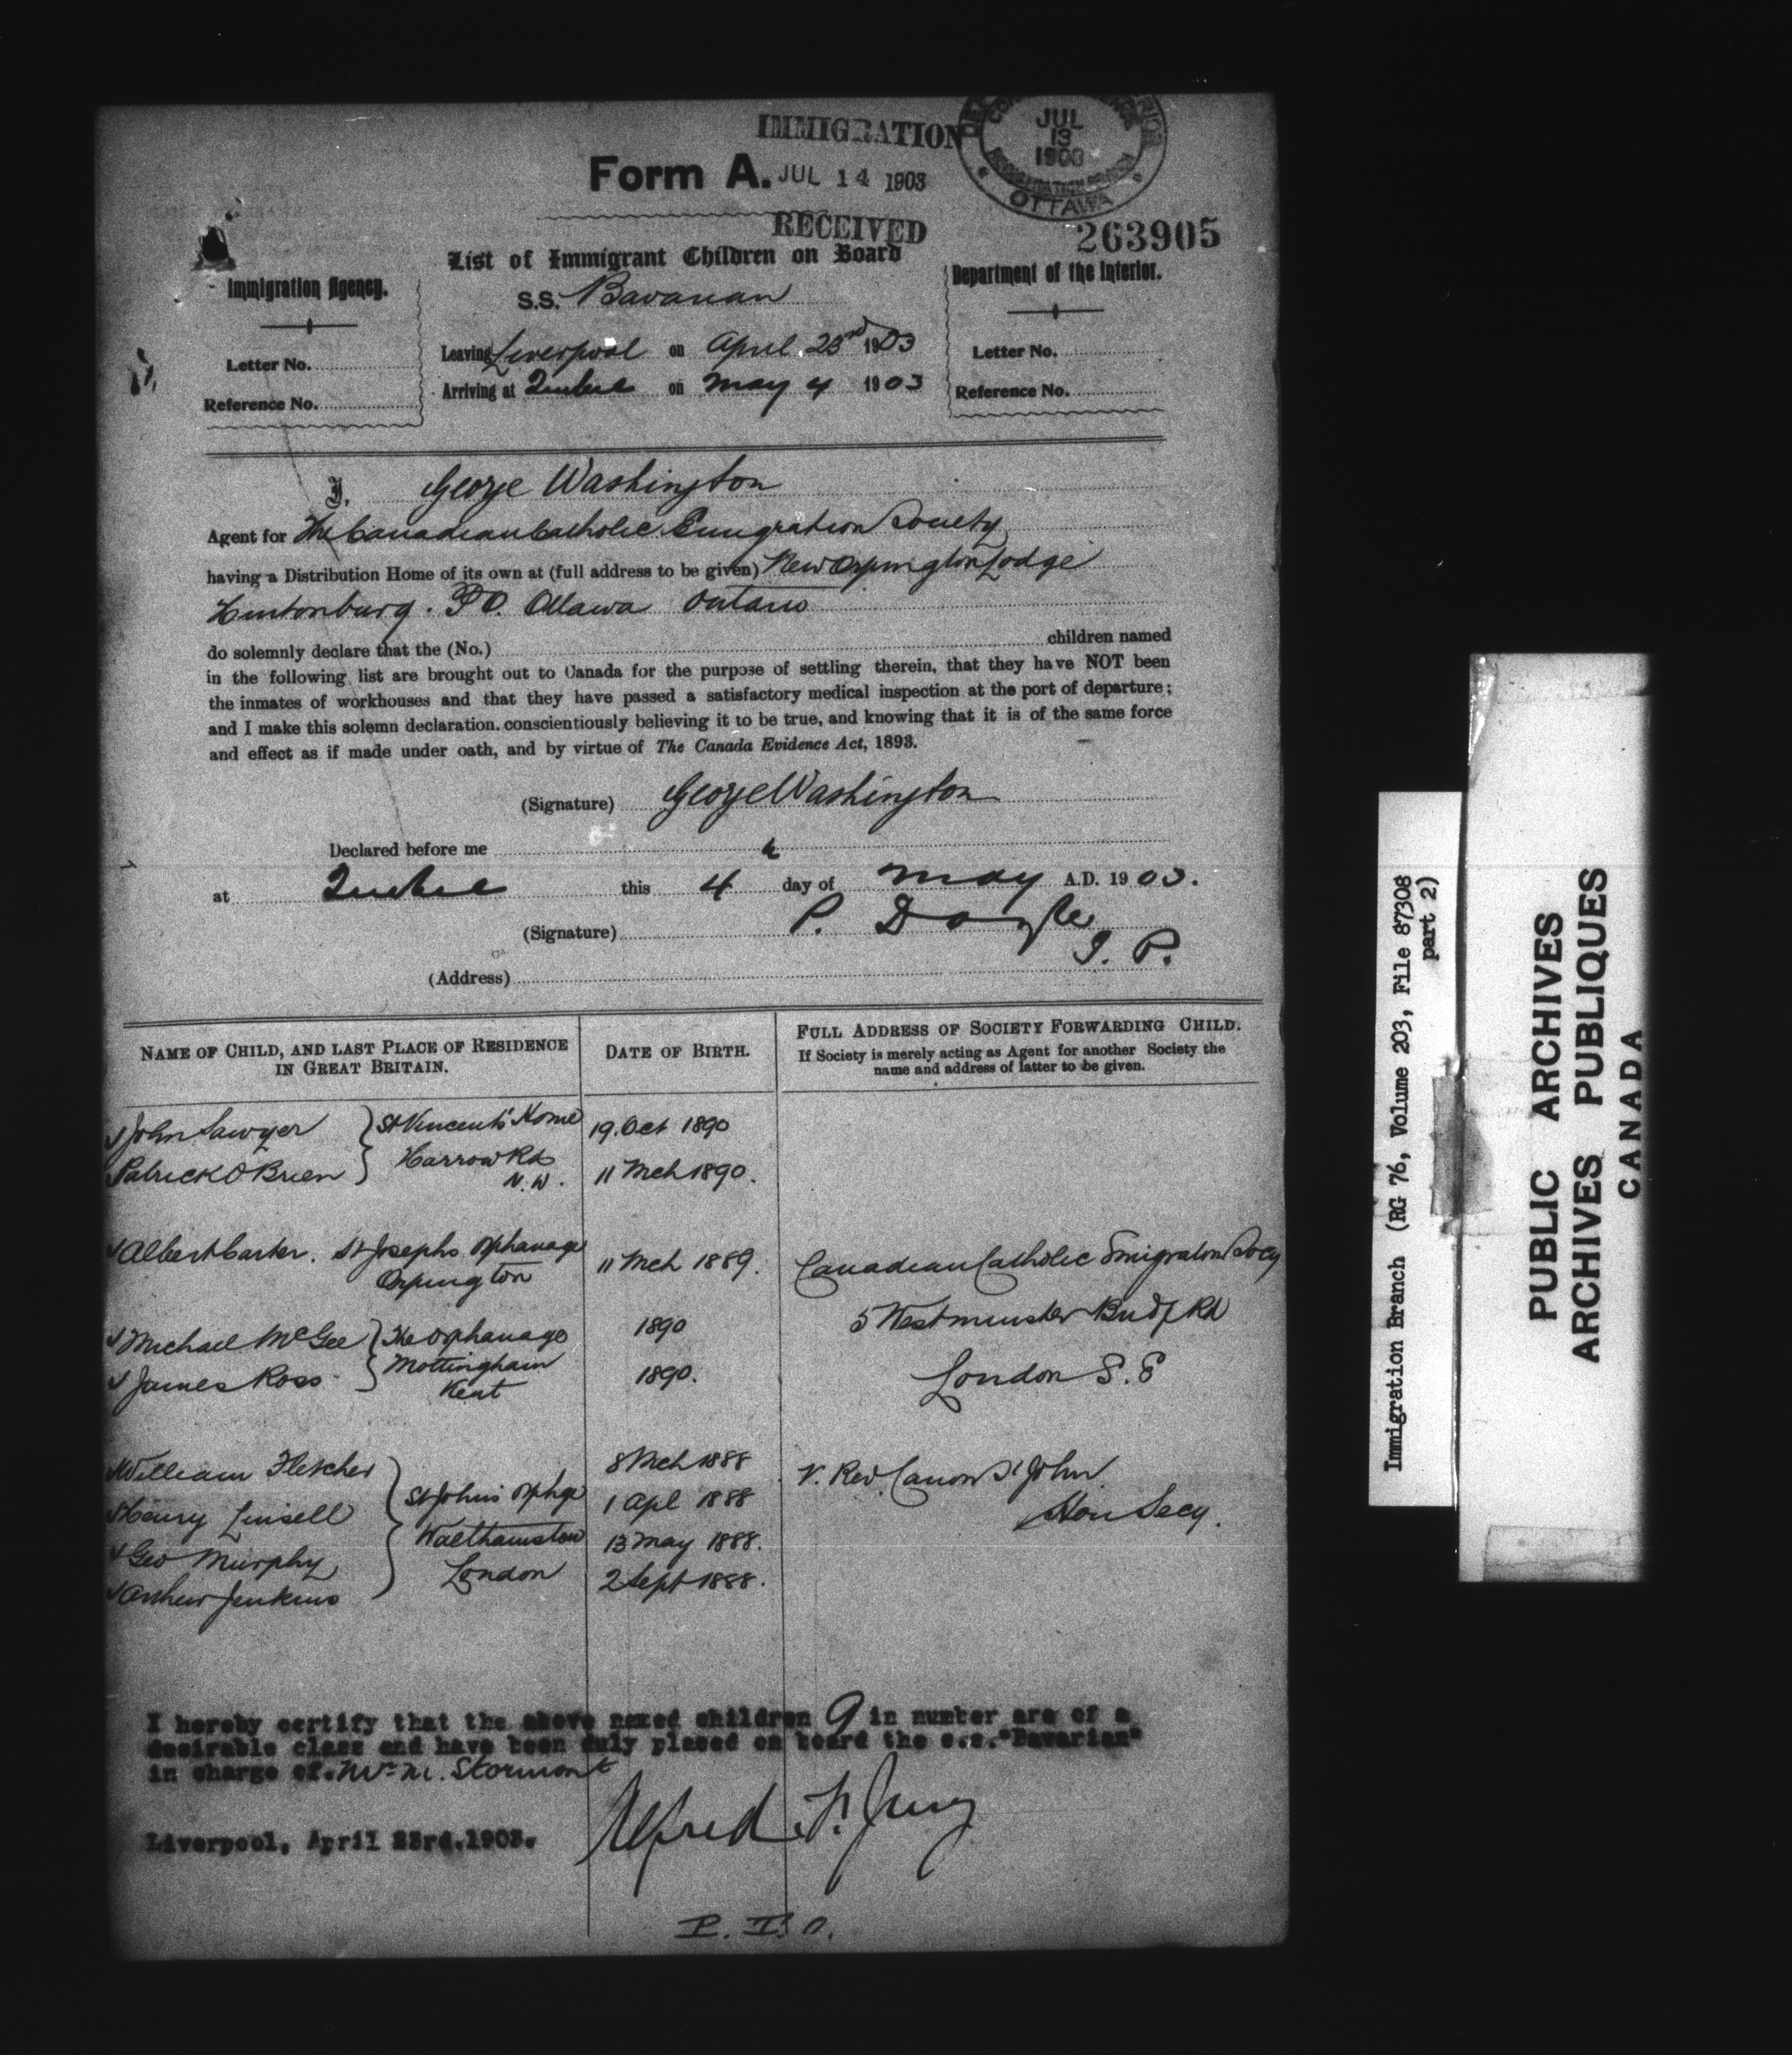 IMMIGRATION
JUL 13 1903
OTTAWA
Form A.
JUL 14 1903
RECEIVED
263905
List of Immigrant Children on Board
S.S. Bavarian
Immigration Agency.
Letter No.
Reference No.
Leaving Liverpool on April 23rd 1903
Arriving at Quebec on May 4 1903
Department of the Interior.
Letter No.
Reference No.
I, George Washington
Agent for The Canadian Catholic Emigration Society
having a Distribution Home of its own at (full address to be given) New Orpington Lodge
Hintonburg. P.O. Ottawa Ontario
do solemnly declare that the (No.) children named
in the following list are brought out to Canada for the purpose of settling therein, that they have NOT been
the inmates of workhouses and that they have passed a satisfactory medical inspection at the port of departure;
and I make this solemn declaration. conscientiously believing it to be true, and knowing that it is of the same force
and effect as if made under oath, and by virtue of The Canada Evidence Act, 1893.
(Signature) George Washington
Declared before me
at Quebec this 4 day of May A.D. 1903.
(Signature) P. Doyle
J. P.
(Address)
NAME OF CHILD, AND LAST PLACE OF RESIDENCE
IN GREAT BRITAIN.
DATE OF BIRTH.
FULL ADDRESS OF SOCIETY FORWARDING CHILD.
If Society is merely acting as Agent for another Society the
name and address of latter to be given.
John Sawyer St Vincents' Home 19. Oct 1890
Patrick O'Brien Harrow Rd 11 Mch 1890.
N.W.
Albert Carter. St Josephs Orphanage 11 Mch 1889. Canadian Catholic Emigration Socy
Orpington
Michael McGee The Orphanage 1890 5 Westminster Bridge Rd
James Ross Mottingham 1890. London S.E
Kent
William Fletcher 8 Mch 1888 V. Rev. Canon St John
Henry Linsell St Johns Orphge 1 Apl 1888 Hon Secy.
Geo Murphy Walthamstow 13 May 1888.
Arthur Jenkins London 2 Sept 1888.
I hereby certify that the above named children 9 in number are of a
desirable class and have been duly placed on board the s.s."Bavarian"
in charge of. Mr. M. Stormont
Liverpool, April 23rd.1903.
Alfred F. Jury
P. T. O.
Immigration Branch (RG 76, Volume 203, File 87308
part 2)
PUBLIC ARCHIVES
ARCHIVES PUBLIQUES
CANADA